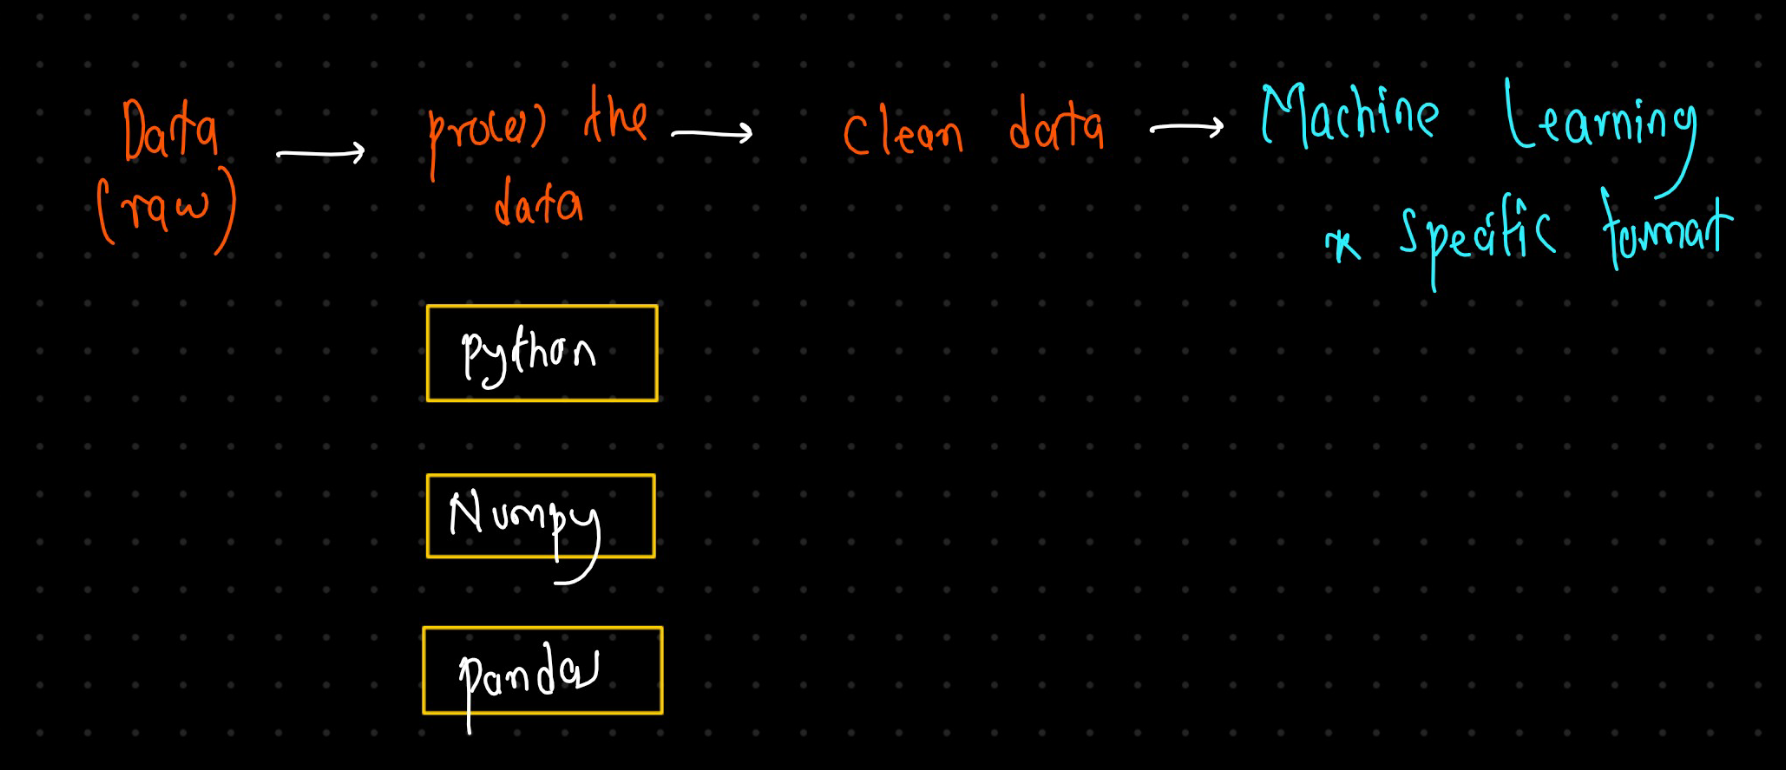 Data
(raw)
→ process the
data
→ Clean data → Machine Learning
* Specific format
python
Numpy
pandas